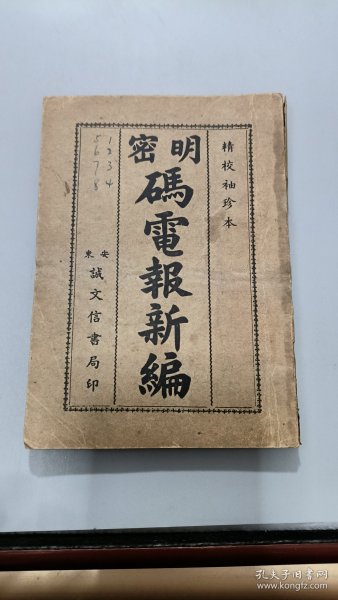 精校袖珍本
明密
碼電報新編
安東
誠文信書局印
1234
5678
孔夫子旧书网
www.kongfz.com